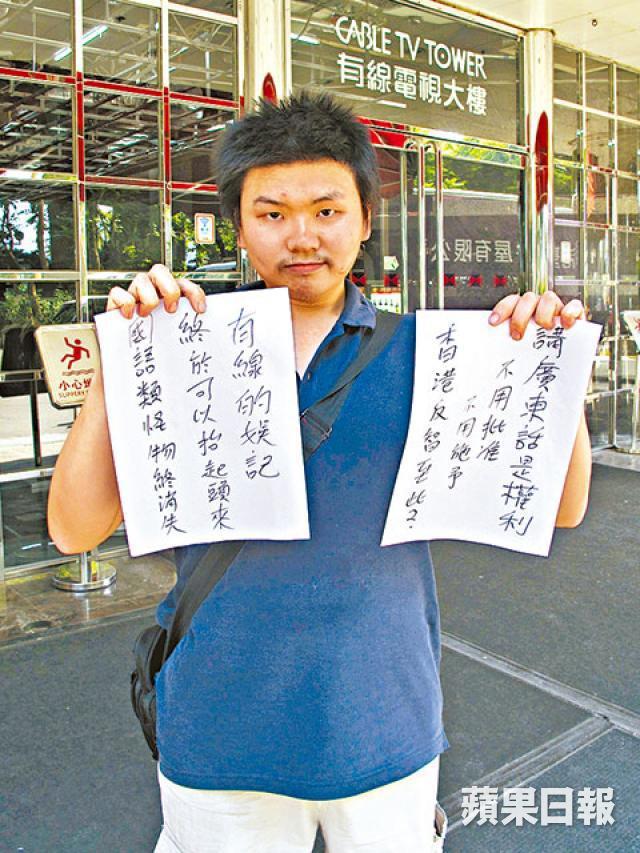 CABLE TV TOWER
有線電視大樓
屋有限公
小心
有線的娛記
終於可以抬起頭來
國語類怪物終消失
講廣東話是權利
不用批准
不用施予
香港反智至此?
蘋果日報